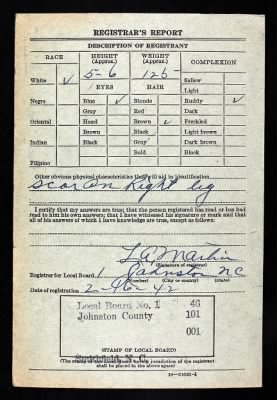 REGISTRAR'S REPORT
DESCRIPTION OF REGISTRANT
RACE
HEIGHT (Approx.)
WEIGHT (Approx.)
COMPLEXION
White ✓
5-6
125
Sallow
Light
EYES
HAIR
Negro
Blue ✓
Blonde
Ruddy ✓
Gray
Red
Dark
Oriental
Hazel
Brown ✓
Freckled
Brown
Black
Light brown
Indian
Black
Gray
Dark brown
Bald
Black
Filipino
Other obvious physical characteristics that will aid in identification
Scar on Right leg
I certify that my answers are true; that the person registered has read or has had
read to him his own answers; that I have witnessed his signature or mark and that
all of his answers of which I have knowledge are true, except as follows:
L A Martin
(Signature of registrar)
Registrar for Local Board 1 Johnston NC
(Number) (City or county) (State)
Date of registration 2-16-42
Local Board No. 1 46
Johnston County 101
001
Smithfield N.C.
(STAMP OF LOCAL BOARD)
(The stamp of the Local Board having jurisdiction of the registrant
shall be placed in the above space)